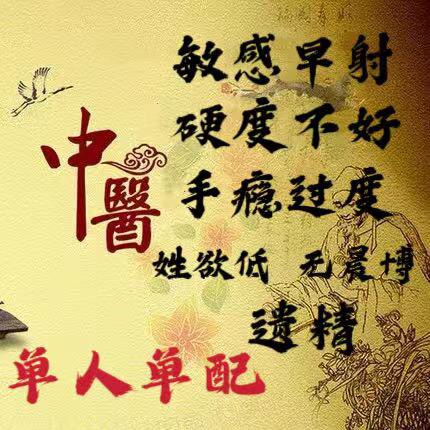 敏感早射
硬度不好
手瘾过度
姓欲低 无晨博
遗精
中醫
单人单配